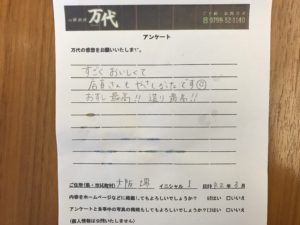 万代
0799-52-1180
アンケート
万代の感想をお願いいたします。
すごくおいしくて
店員さんもやさしかったです
おすし最高!! 造り最高!!
ご住所(県・市試取材) 大阪 堺 イニシャル I 日付 R2年3月
内容をホームページなどに掲載してもよろしいでしょうか? ☑はい □いいえ
アンケートと食事中の写真の掲載もしてもよろしいでしょうか? ☑はい □いいえ
(個人情報は公開いたしません)